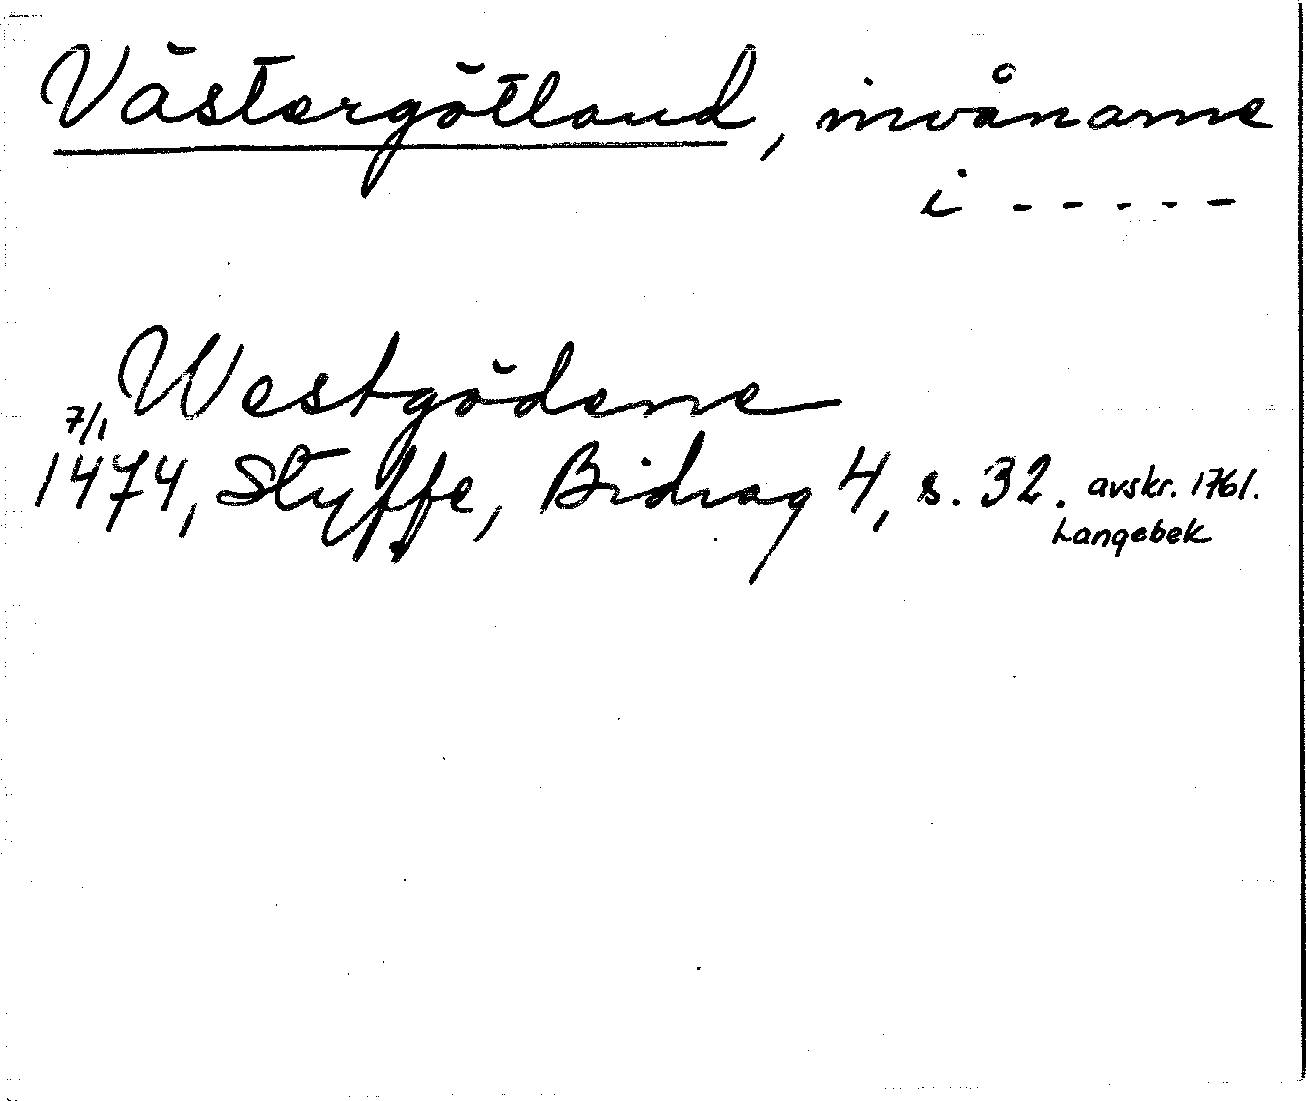 Västergötland, invånarne
i - - - - -
Westgöderne
7/1
1474, Styffe, Bidrag 4, s. 32. avskr. 1761.
Langebek